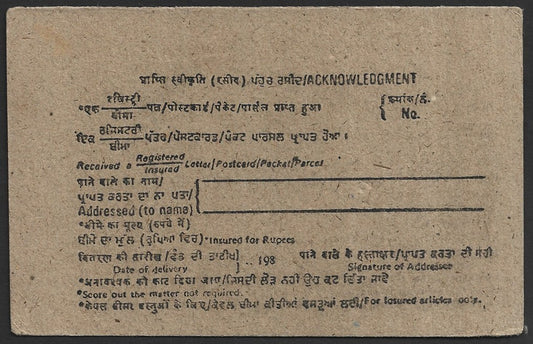 प्राप्ति स्वीकृति (रसीद) ਪਹੁਚ ਰਸੀਦ/ACKNOWLEDGMENT
*एक रजिस्ट्री/बीमा पत्र/पोस्टकार्ड/पैकेट/पार्सल प्राप्त हुआ
{ क्रमांक/ਨੰ. No.
ਇਕ ਰਜਿਸਟਰੀ/ਬੀਮਾ ਪੱਤਰ/ਪੋਸਟਕਾਰਡ/ਪੈਕਟ ਪਾਰਸਲ ਪ੍ਰਾਪਤ ਹੋਆ।
Received a Registered/Insured Letter/Postcard/Packet/Parcel
पाने वाले का नाम/
ਪ੍ਰਾਪਤ ਕਰਤਾ ਦਾ ਨਾ ਪਤਾ/
Addressed (to name)
*बीमे का मूल्य (रुपये में)
ਬੀਮੇ ਦਾ ਮੁੱਲ (ਰੁਪਿਆ ਵਿਚ) *Insured for Rupees
वितरण की तारीख/ਵੰਡ ਦੀ ਤਾਰੀਖ
Date of delivery
198
पाने वाले के हस्ताक्षर/ਪ੍ਰਾਪਤ ਕਰਤਾ ਦੀ ਸਹੀ
Signature of Addressee
*अनावश्यक को काट दिया जाए/ਜਿਸਦੀ ਲੋੜ ਨਹੀਂ ਉਹ ਕਟ ਦਿੱਤਾ ਜਾਵੇ
*Score out the matter not required.
*केवल बीमा वस्तुओं के लिए/ਕੇਵਲ ਬੀਮਾ ਕੀਤੀਆਂ ਵਸਤੂਆਂ ਲਈ/For insured articles only.